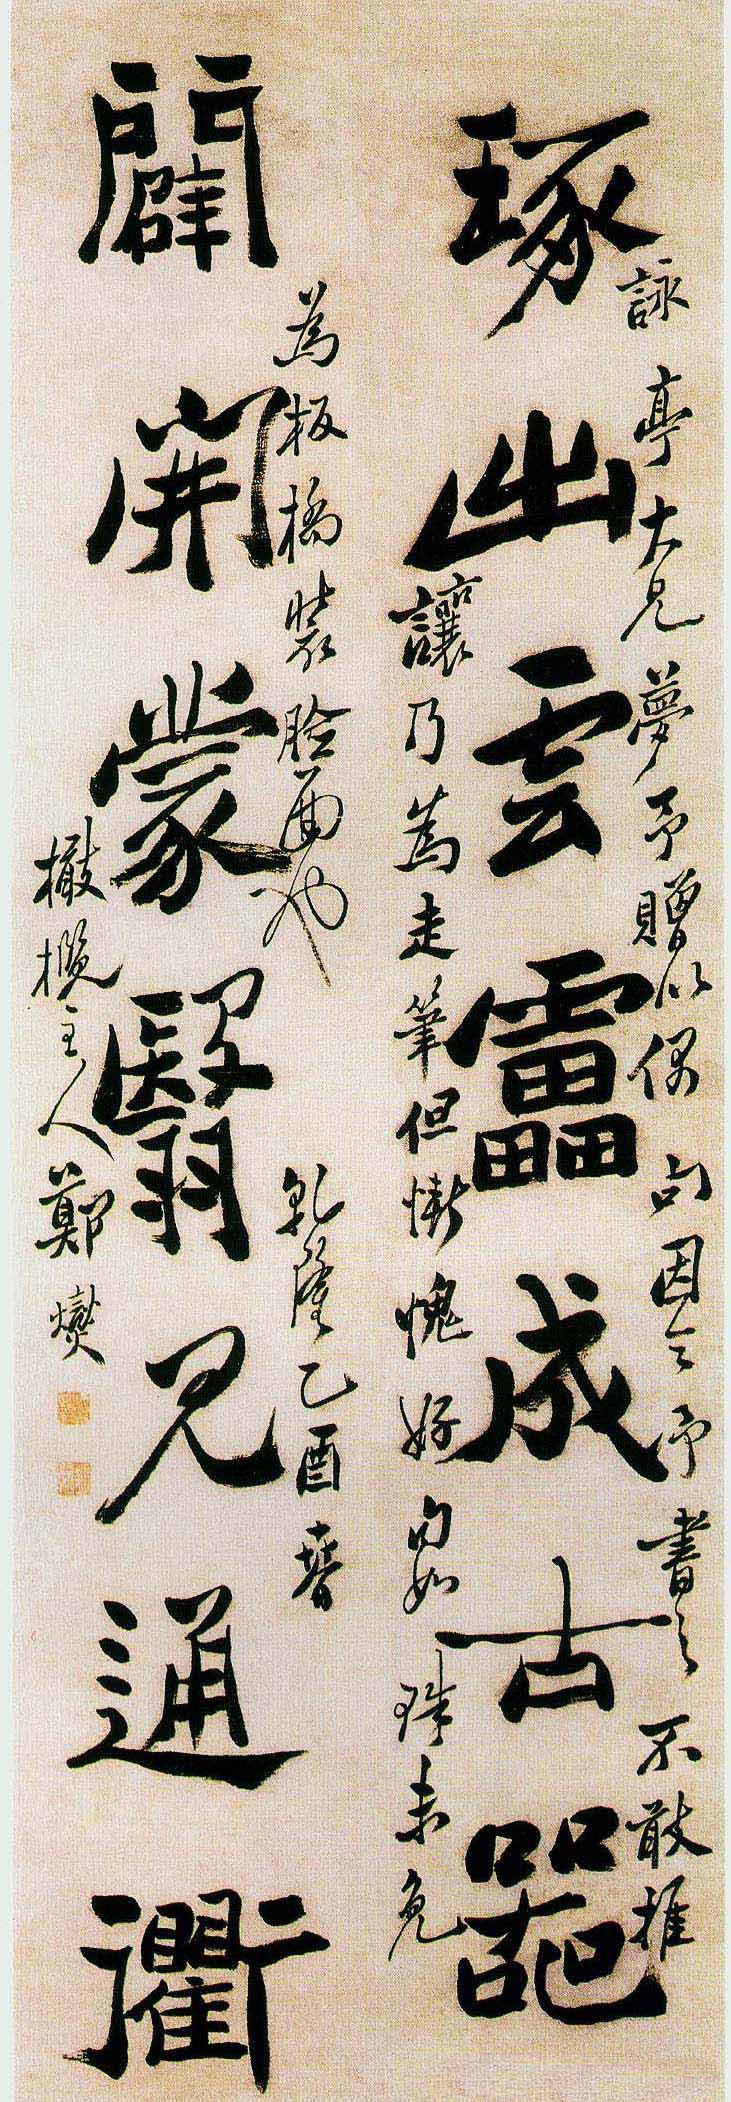 琢出云靁成古器
詠亭大兄夢予贈以偶句因令予書之不敢推
讓乃為走筆但慚愧好句如珠未免
闢開蒙翳見通衢
為板橋裝臉面也
乾隆乙酉春
橄欖主人鄭燮